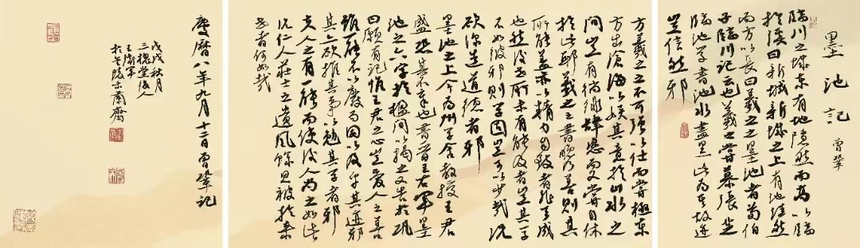 墨池記 曾鞏
臨川之城東有地隱然而高以臨
於溪曰新城新城之上有池窪然
而方以長曰羲之之墨池者荀伯
子臨川記云也羲之嘗慕張芝
臨池學書池水盡黑此為其故迹
豈信然邪
方羲之之不可強以仕而嘗極東
方出滄海以娛其意於山水之
間豈有徜徉肆恣而又嘗自休
於此邪羲之之書晚乃善則其
所能蓋亦以精力自致者非天成
也然後世未有能及者豈其學
不如彼邪則學固豈可以少哉況
欲深造道德者邪
墨池之上今為州學舍教授王君
盛恐其不章也書晉王右軍墨
池之六字於楹間以揭之又告於鞏
曰願有記推王君之心豈愛人之善
雖一能不以廢而因以及乎其迹邪
其亦欲推其事以勉其學者邪
夫人之有一能而使後人尚之如此
況仁人莊士之遺風餘思被於來
世者何如哉
慶曆八年九月十二日曾鞏記
戊戌秋月
三槐堂後人